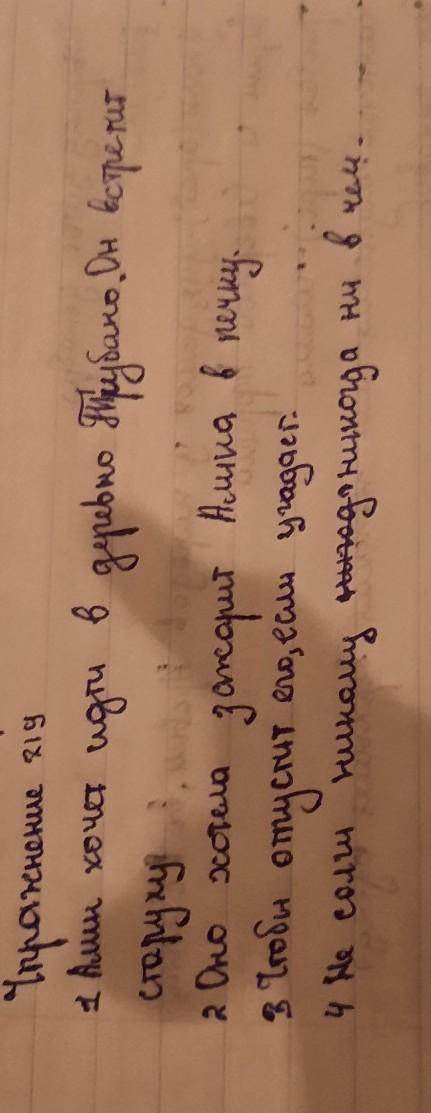 Упражнение 219
1 Али хочет идти в деревно Трубано. Он встретит
старуху
2 Оно хотела зажарит Алина в печку.
3 Чтобы отпустит его, если угадает.
4 Не солги никому никогда ни в чем.